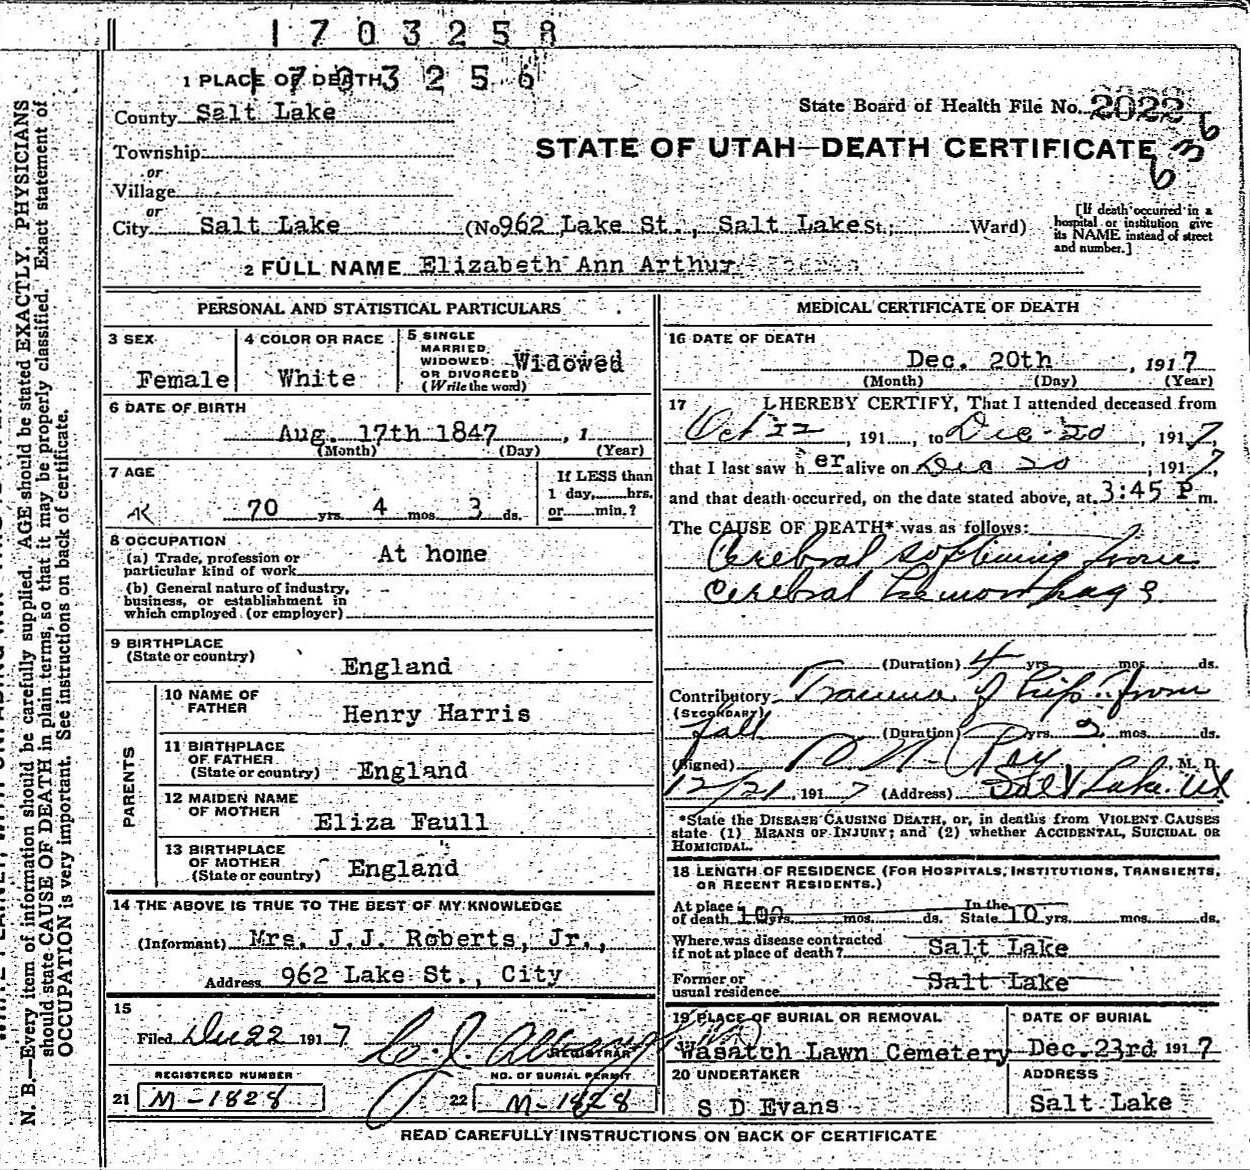 1703258
1703256
1 PLACE OF DEATH
County Salt Lake
State Board of Health File No. 2022
636
Township
or
STATE OF UTAH—DEATH CERTIFICATE
Village
or
City Salt Lake (No 962 Lake St., Salt Lake St.; Ward)
[If death occurred in a
hospital or institution give
its NAME instead of street
and number.]
2 FULL NAME Elizabeth Ann Arthur
PERSONAL AND STATISTICAL PARTICULARS
3 SEX
Female
4 COLOR OR RACE
White
5 SINGLE
MARRIED
WIDOWED
OR DIVORCED
(Write the word)
Widowed
6 DATE OF BIRTH
Aug. 17th 1847, 1
(Month) (Day) (Year)
7 AGE
70 yrs. 4 mos. 3 ds.
If LESS than
1 day, hrs.
or min.?
8 OCCUPATION
(a) Trade, profession or
particular kind of work
At home
(b) General nature of industry,
business, or establishment in
which employed (or employer)
9 BIRTHPLACE
(State or country)
England
PARENTS
10 NAME OF
FATHER
Henry Harris
11 BIRTHPLACE
OF FATHER
(State or country) England
12 MAIDEN NAME
OF MOTHER
Eliza Faull
13 BIRTHPLACE
OF MOTHER
(State or country) England
14 THE ABOVE IS TRUE TO THE BEST OF MY KNOWLEDGE
(Informant) Mrs. J.J. Roberts, Jr.,
Address 962 Lake St., City
15
Filed Dec 22 1917
REGISTRAR
REGISTERED NUMBER
21 M-1828
NO. OF BURIAL PERMIT
22 M-1828
MEDICAL CERTIFICATE OF DEATH
16 DATE OF DEATH
Dec. 20th, 1917
(Month) (Day) (Year)
17 I HEREBY CERTIFY, That I attended deceased from
Oct 22, 191 , to Dec-20, 1917,
that I last saw h er alive on Dec 20, 1917,
and that death occurred, on the date stated above, at 3:45 P m.
The CAUSE OF DEATH* was as follows:
Cerebral softening from
Cerebral hemorrhage
(Duration) 4 yrs. mos. ds.
Contributory Trauma of hip from
(SECONDARY)
fall (Duration) yrs. 2 mos. ds.
(Signed) M. D.
12/21, 1917 (Address) Salt Lake. Ut
*State the DISEASE CAUSING DEATH, or, in deaths from VIOLENT CAUSES
state (1) MEANS OF INJURY; and (2) whether ACCIDENTAL, SUICIDAL OR
HOMICIDAL.
18 LENGTH OF RESIDENCE (FOR HOSPITALS, INSTITUTIONS, TRANSIENTS,
OR RECENT RESIDENTS.)
At place In the
of death yrs. mos. ds. State 10 yrs. mos. ds.
Where was disease contracted
if not at place of death? Salt Lake
Former or
usual residence Salt Lake
19 PLACE OF BURIAL OR REMOVAL
Wasatch Lawn Cemetery
DATE OF BURIAL
Dec. 23rd 1917
20 UNDERTAKER
S D Evans
ADDRESS
Salt Lake
READ CAREFULLY INSTRUCTIONS ON BACK OF CERTIFICATE
N. B.—Every item of information should be carefully supplied. AGE should be stated EXACTLY. PHYSICIANS
should state CAUSE OF DEATH in plain terms, so that it may be properly classified. Exact statement of
OCCUPATION is very important. See instructions on back of certificate.